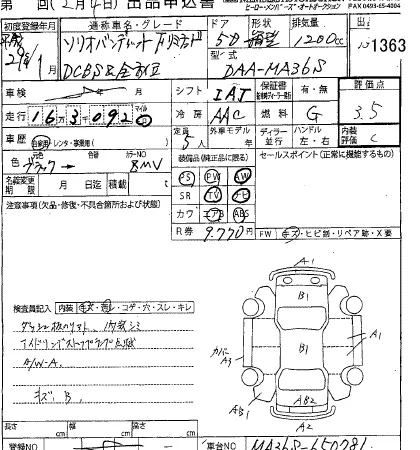 第 回(2月4日) 出品申込書
ヒーローメンバーズ・オートオークション FAX 0493-65-4004
初度登録年月 通称車名・グレード ドア 形状 排気量
平成29年1 ソリオバンディット 5D 箱型 1200cc 1363
DCBS& 型式 DAA-MA36S
車検 シフト IAT 保証書 有・無 評価点
走行 163092 冷房 AAC 燃料 G 3.5
車歴 自家用・レンタ・事業用 定員 5人 外車モデル 年 ディーラー 並行 ハンドル 左・右 内装評価 C
色 ブラック 色替 カラーNO 8MV 装備品(純正品に限る) セールスポイント(正常に機能するもの)
名義変更期限 月 日迄 積載 PS PW AW
注意事項(欠品・修復・不具合箇所および状態) SR TV ナビ
カワ エアB ABS
R券 9,770円 FW キズ・ヒビ割・リペア跡・X要
検査員記入 内装 キズ・汚し・コゲ・穴・スレ・キレ
内装シミ
アイドリングストップランプ点滅
A/W-A
キズ B
A1
B1
B1
A1
カバー
A3
AB1
AB2
A2
長さ cm 幅 cm 高さ cm
登録NO 車台NO MA36S-650781